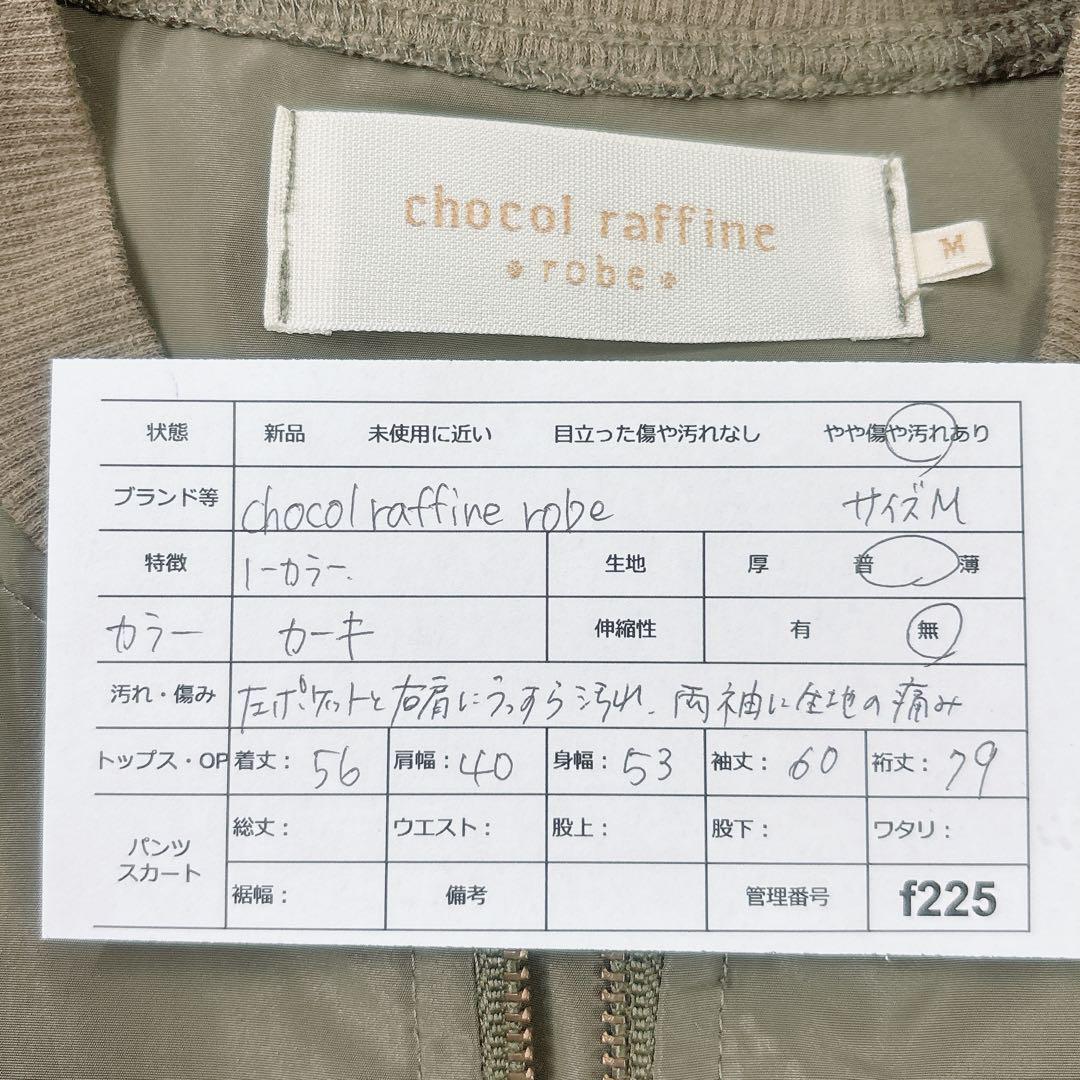 chocol raffine
robe
M
状態 新品 未使用に近い 目立った傷や汚れなし やや傷や汚れあり
ブランド等 chocol raffine robe サイズM
特徴 ノーカラー. 生地 厚 普 薄
カラー カーキ 伸縮性 有 無
汚れ・傷み 左ポケットと右肩にうっすら汚れ、両袖に生地の痛み
トップス・OP 着丈: 56 肩幅: 40 身幅: 53 袖丈: 60 裄丈: 79
パンツ スカート 総丈: ウエスト: 股上: 股下: ワタリ:
裾幅: 備考 管理番号 f225